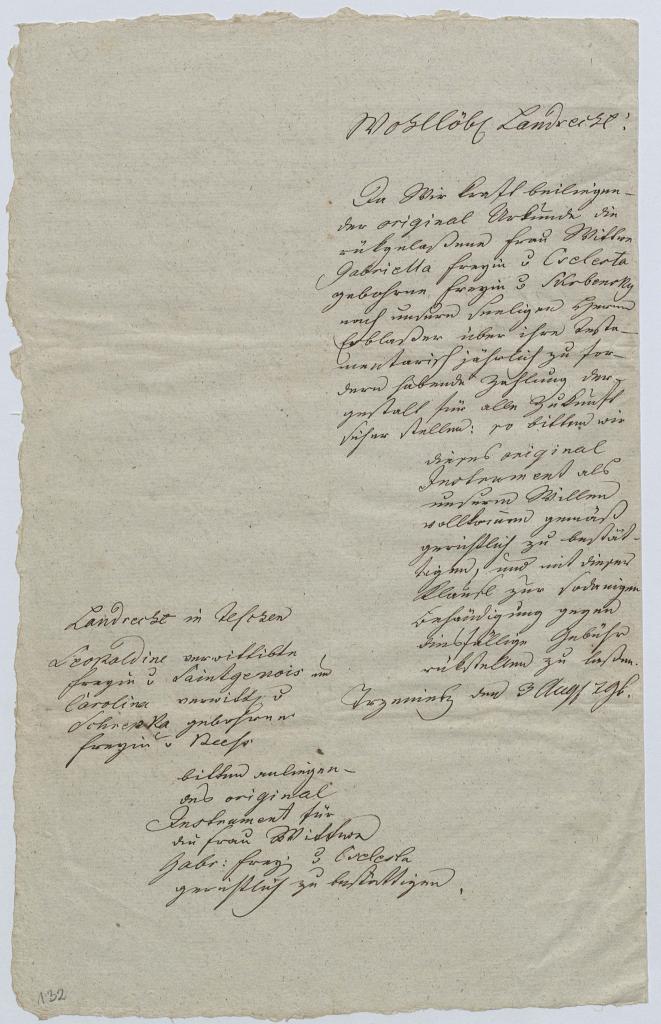 Wohllöbl Landrecht!
Da Wir kraft beiliegen-
der original Urkunde die
rükgelaßene Frau Wittwe
Gabriella Freyin v Cselesta
gebohrne Freyin v Skrbensky
nach unsern seeligen Herrn
Erblaßer über ihre testa-
mentarisch jährlich zu for-
dern habende Zahlung der-
gestalt für alle Zukunft
sicher stellen: so bitten wir
dieses original
Instrument als
unserm Willen
vollkomen gemäß
gerichtlich zu bestät-
tigen, und mit dieser
Klausl zur
Behändigung gegen
diesfällige Gebühr
rükstellen zu laßen.
Trzenietz den 3 Augs 796.
Landrecht in Teschen
Leopoldine verwittibte
Freyin v Saintgenois und
Carolina verwitt: v
Schnepka gebohrne
Freyin v Beess
bitten anliegen-
des original
Instrument für
die Frau Wittwe
Gabr: Frey: v Cselesta
gerichtlich zu bestättigen.
132